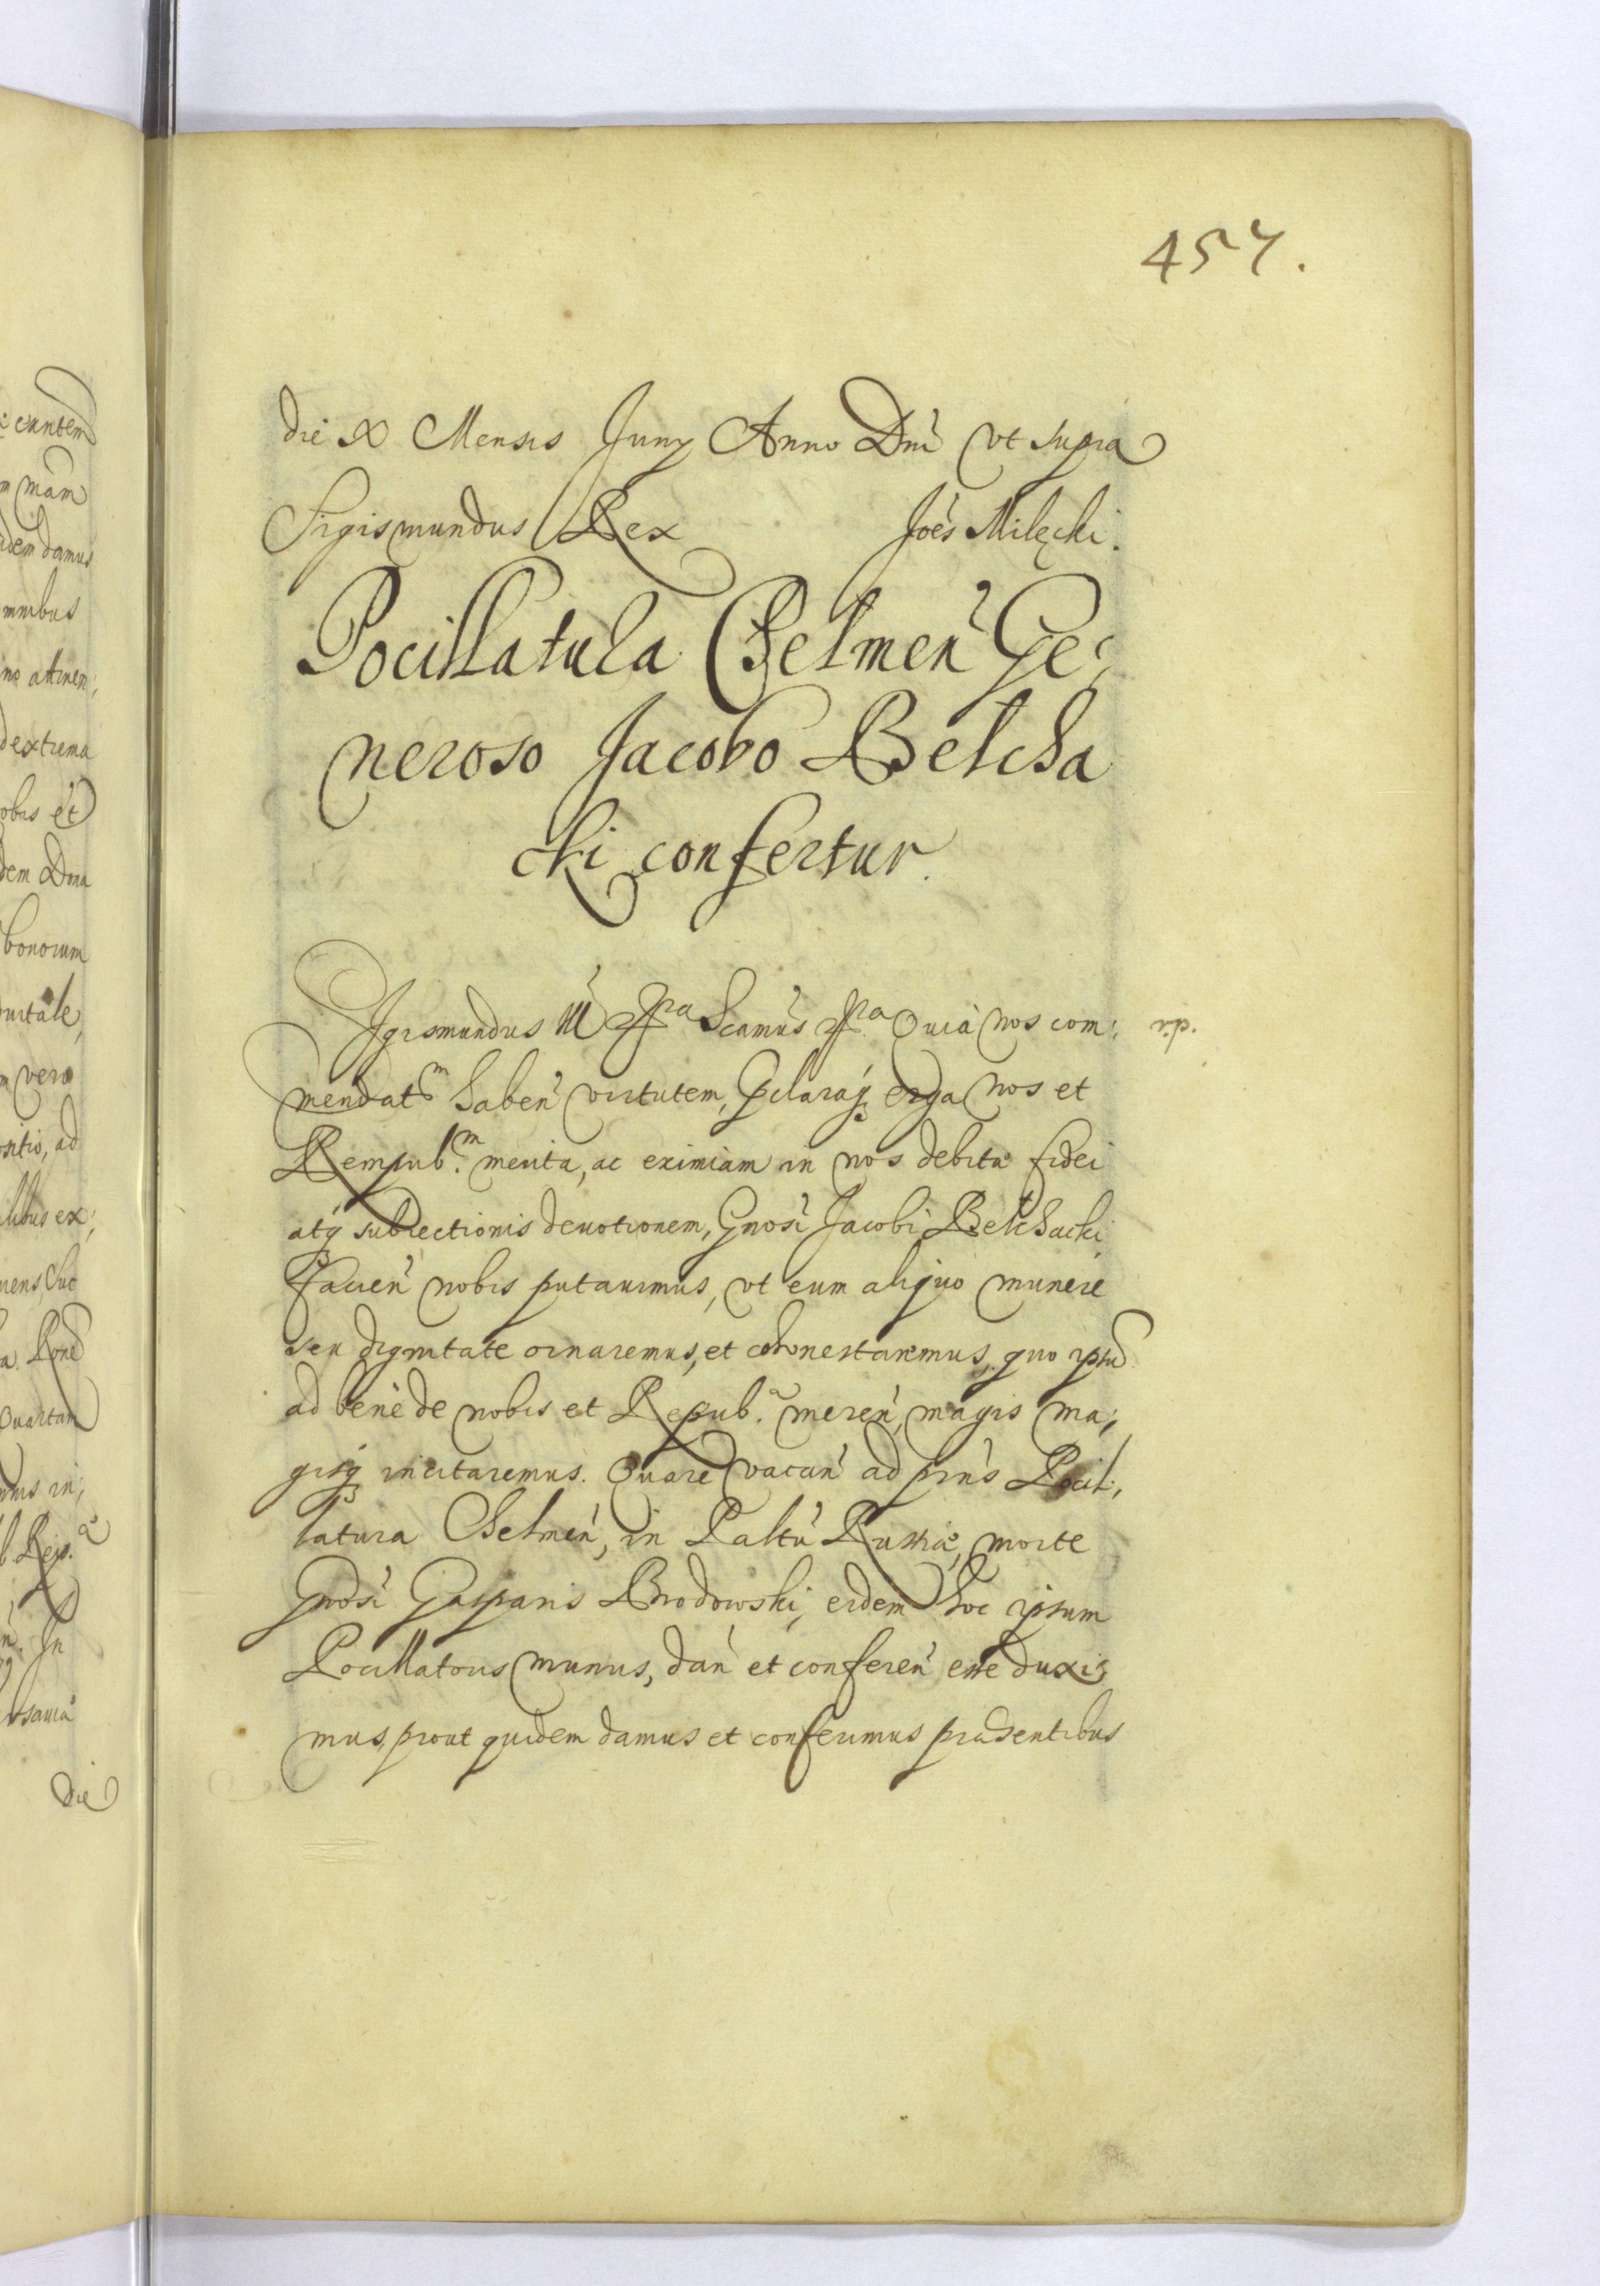 457.
die X Mensis Juny Anno Dni vt supra
Sigismundus Rex Joes Milęcki.
Pocillatula Chelmen Ge:
neroso Jacobo Belcha
cki confertur.
Sigismundus III Scamus Quia nos com: r.p.
mendatm haben virtutem, pclaraq erga nos et
Rempub.m merita, ac eximiam in nos debitæ fidei
atq subiectionis deuotionem, Gnosi Jacobi Belchacki
facien nobis putauimus, vt eum aliquo munere
seu dignitate ornaremus, et cohonestaremus, quo ipsu
ad bene de nobis et Repub.a meren, magis ma;
gisq incitaremus. Quare vacan ad pns Pocil;
latura Chelmen, in Paltu Russiæ, morte
Gnosi Gasparis Brodowski, eidem hoc ipsum
Pocillatoris munus, dan et conferen esse duxi;
mus, prout quidem damus et conferimus præsentibus
vero
bonorum
dextrema
omnibus
idem damus
Quartam
Die